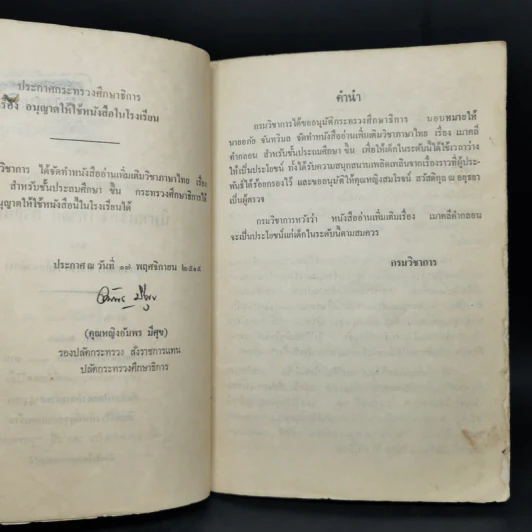 ประกาศกระทรวงศึกษาธิการ
เรื่อง อนุญาตให้ใช้หนังสือในโรงเรียน
วิชาการ ได้จัดทำหนังสืออ่านเพิ่มเติมวิชาภาษาไทย เรื่อง
สำหรับชั้นประถมศึกษา ขึ้น กระทรวงศึกษาธิการได้
อนุญาตให้ใช้หนังสือนี้ในโรงเรียนได้
ประกาศ ณ วันที่ ๑๗ พฤศจิกายน ๒๕๑๕
(คุณหญิงอัมพร มีศุข)
รองปลัดกระทรวง สั่งราชการแทน
ปลัดกระทรวงศึกษาธิการ
คำนำ
กรมวิชาการได้ขออนุมัติกระทรวงศึกษาธิการ มอบหมายให้
นายอภัย จันทวิมล จัดทำหนังสืออ่านเพิ่มเติมวิชาภาษาไทย เรื่อง เมาคลี
คำกลอน สำหรับชั้นประถมศึกษา ขึ้น เพื่อให้เด็กในระดับนี้ได้ใช้เวลาว่าง
ให้เป็นประโยชน์ ทั้งได้รับความสนุกสนานเพลิดเพลินจากเรื่องราวที่ผู้ประ-
พันธ์ได้ร้อยกรองไว้ และขออนุมัติให้คุณหญิงสมโรจน์ สวัสดิกุล ณ อยุธยา
เป็นผู้ตรวจ
กรมวิชาการหวังว่า หนังสืออ่านเพิ่มเติมเรื่อง เมาคลีคำกลอน
จะเป็นประโยชน์แก่เด็กในระดับนี้ตามสมควร
กรมวิชาการ